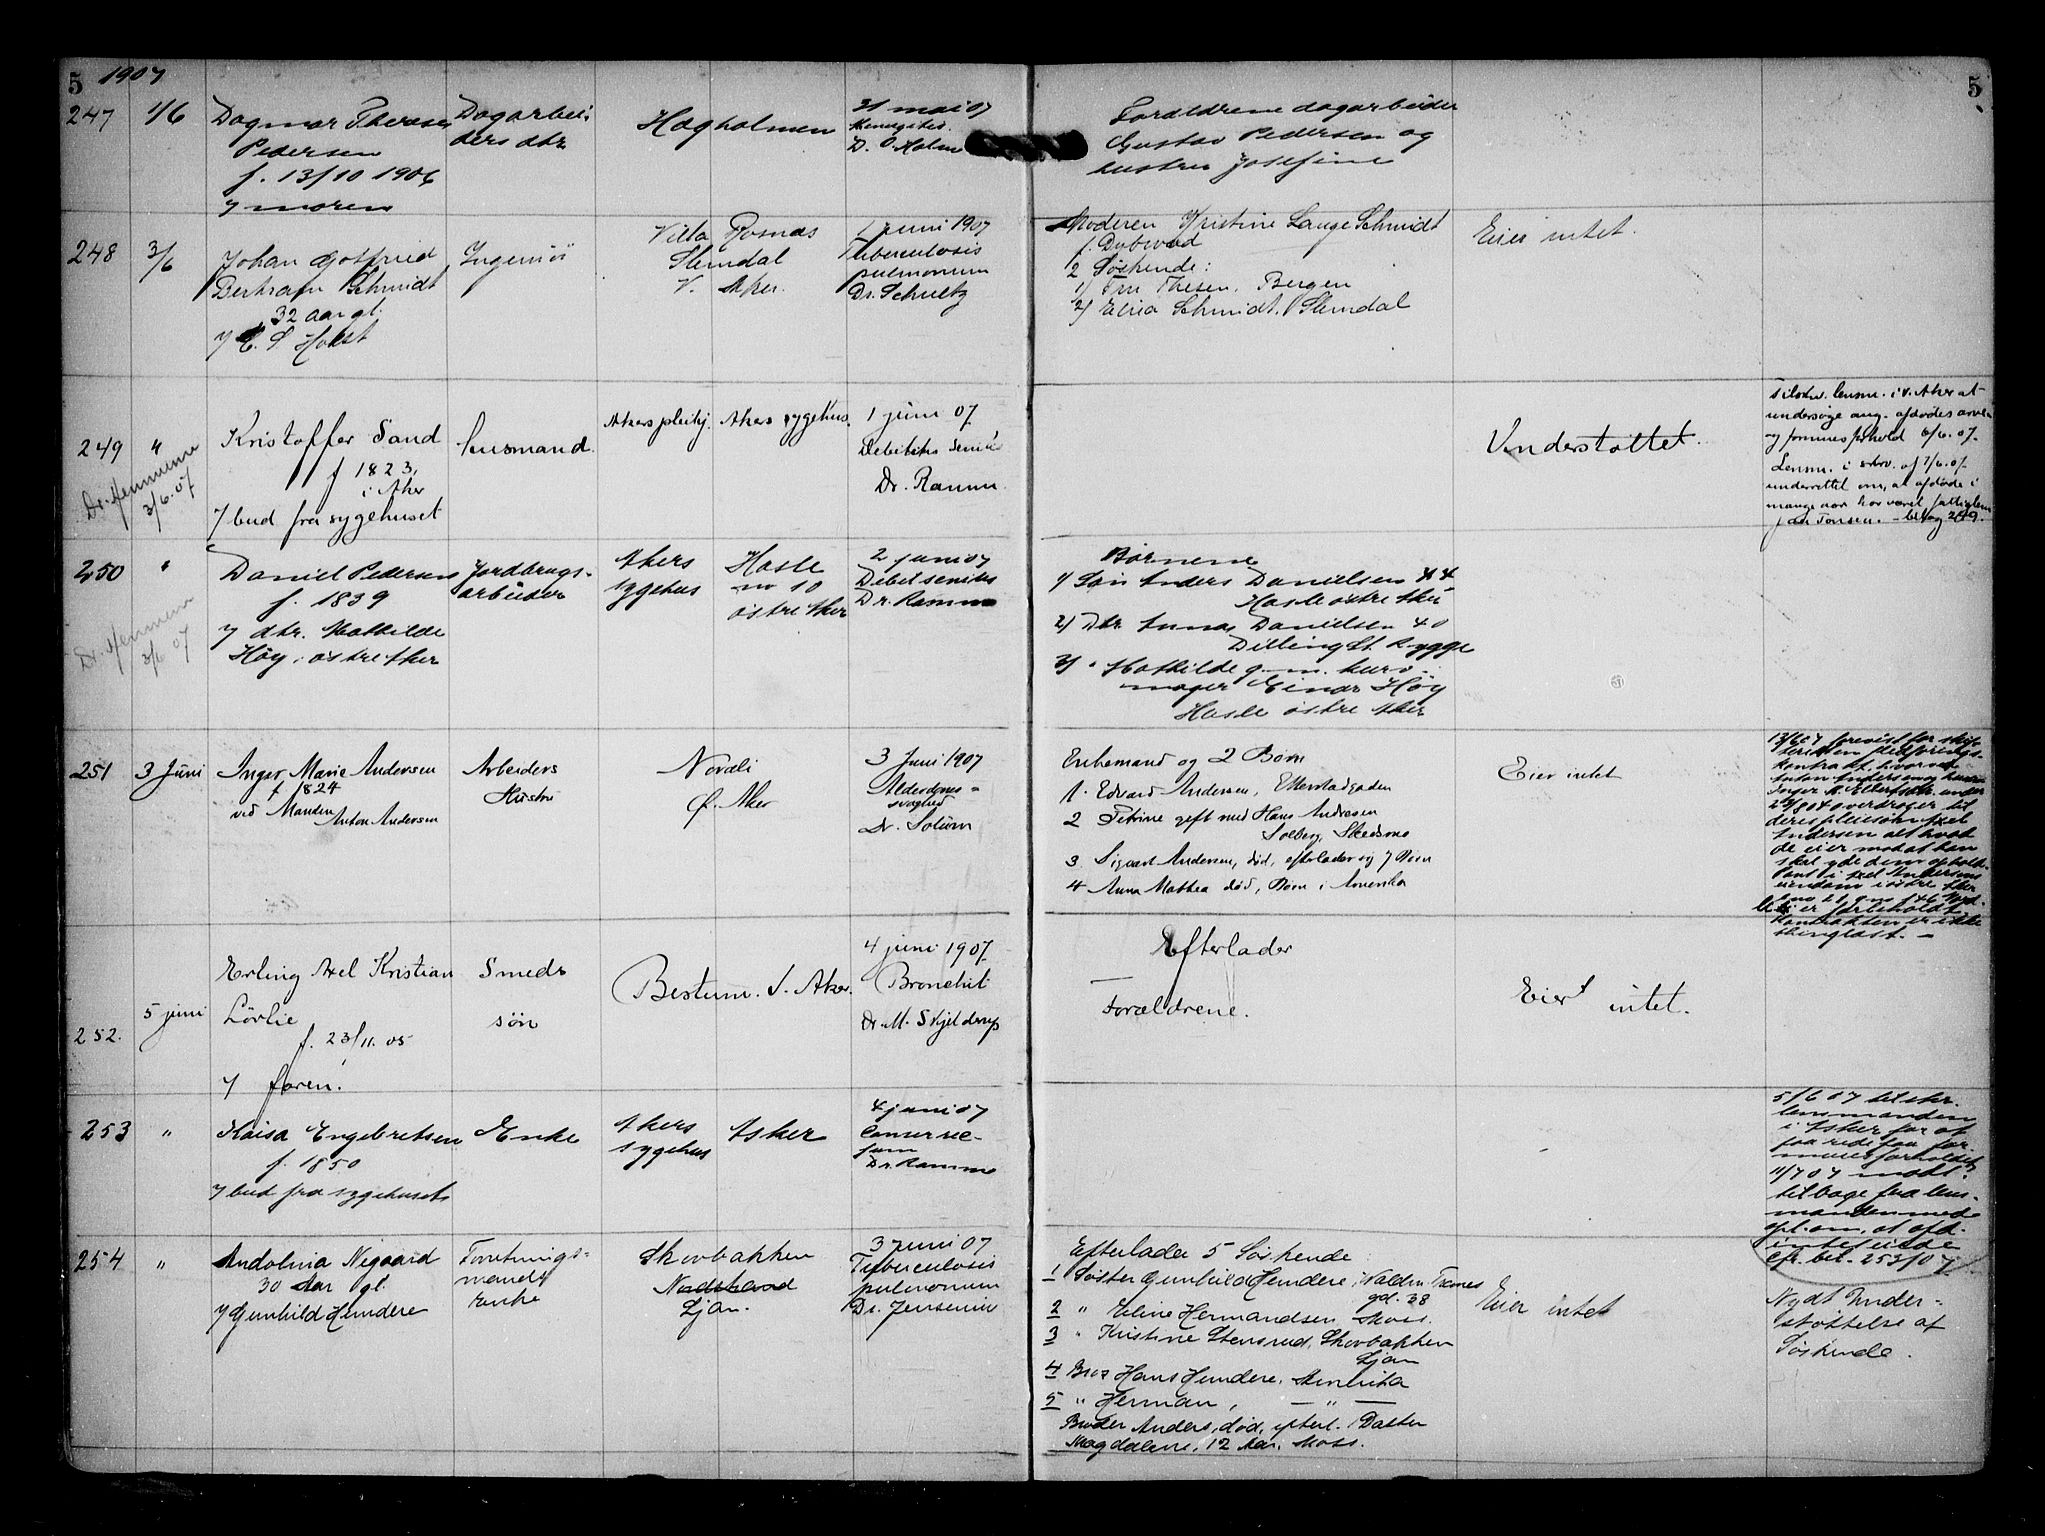 5 1907
5
247 1/6 Dagmar Therese Dagarbei- Hagholmen 31 mai 07 Forældrene dagarbeider
Pedersen ders dtr. Meningitis. Gustav Pedersen og
f. 13/10 1906 D. O. Holm hustru Josefine
v moren
248 3/6 Johan Gotfried Ingeniør Villa Rosnæs 1 juni 1907 Moderen Kristine Lange Schmidt Eier intet.
Bertram Schmidt Slemdal Tuberculosis f. Dybwad
32 aar gl. V. Aker. pulmonum 2 Søskende:
v C. S Holst Dr. Schultz 1) Fru Thesen, Bergen
2) Elisa Schmidt, Slemdal
249 " Kristoffer Sand husmand. Akers pleihj. Akers sygehus. 1 juni 07 Understøttet.
f 1823, Debilitas senilis
i Aker Dr. Ramm
v bud fra sygehuset
3/6.07
Tilskr. lensm. i V. Aker at
undersøge ang. afdødes arve-
og formuesforhold 6/6.07.
Lensm. i skrv. af 7/6.07
underrettet om, at afdøde i
mange aar har været fattiglem
bilag 249.
250 " Daniel Pedersen Jordbrugs- Akers Hasle 2 juni 07 Børnene
f. 1839 arbeider sygehus no 10 Debil senilis 1) Søn Anders Danielsen 44
v dtr. Mathilde østre Aker Dr. Ramm Hasle østre Aker
Høy, østre Aker 2) Dtr. Anna Danielsen 40
3/6 07 Dilling St. Rygge
3) " Mathilde g. m. kurv-
mager Einar Høy
Hasle østre Aker
251 3 Juni Inger Marie Andersen Arbeiders Nordli 3 Juni 1907 Enkemand og 2 Børn Eier intet
f 1824 Hustru Ø. Aker Alderdoms-
ved Manden svaghed
Anton Andersen Dr. Solum
1. Edvard Andersen,
2 Petrine gift med Hans Andresen
Solberg, Skedsmo
3. Sigvart Andersen, død, efterlader sig 7 Børn
4 Anna Mathea død, Børn i Amerika
13/6 07 forevist for skif-
kontrakt, hvorved
Anton Andersen og hustru
overdrager til
deres pleiesøn Axel
Andersen alt hvad
de eier mod at han
skal yde dem ophold.
Pant i Axel Andersens
eiendom i østre Aker
er forbeholdt
Kontrakten er ikke
thinglæst. —
252. 5 juni Erling Axel Kristian Smeds Bestum. V. Aker. 4 juni 1907 Efterlader Eier intet.
Lövlie søn Bronchit Forældrene.
f. 23/11. 05 Dr. M. Skjelderup
v faren.
253 " Kaisa Engebretsen Enke Akers Asker 4 juni 07
f. 1850 sygehus Cancer rec-
v bud fra sygehuset Dr. Ramm
5/6 07 tilskr.
lensmanden
i Asker for at
faa rede paa for-
muesforholdet
11/7 07 modt.
tilbage fra lens-
manden med
opl. om, at afd.
intet eiede
cfr. bil. 253/07
254 " Andolina Negaard Forretnings- Skovbakken 3 juni 07 Efterlader 5 Søskende Eier intet
30 Aar gl. mands Nordstrand Tuberculosis
v Gunhild Hemdere Enke Ljan. pulmonum
Dr. Jensenius
1 Søster Gunhild Hemdere,
gd. 38
2 " Eline Hermandsen Moss.
3 " Kristine Stensrud, Skovbakken
Ljan
4 Bror Hans Hemdere, Amerika
5 " Herman, — " —
Broder Anders, død, efterl. 1 Datter
Magdalene, 12 Aar, Moss.
Nydt Under-
støttelse af
Søskende.